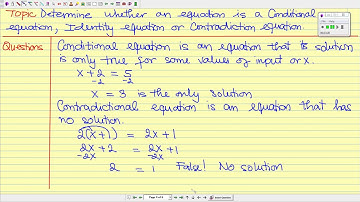 Topic Determine whether an equation is a Conditional
equation, Identity equation or Contradiction equation.
Questions
Conditional equation is an equation that its solution
is only true for some values of input or x.
x + 2 = 5
-2 -2
x = 3 is the only solution
Contradictional equation is an equation that has
no solution.
2(x+1) = 2x + 1
2x + 2 = 2x + 1
-2x -2x
2 = 1 False! No solution